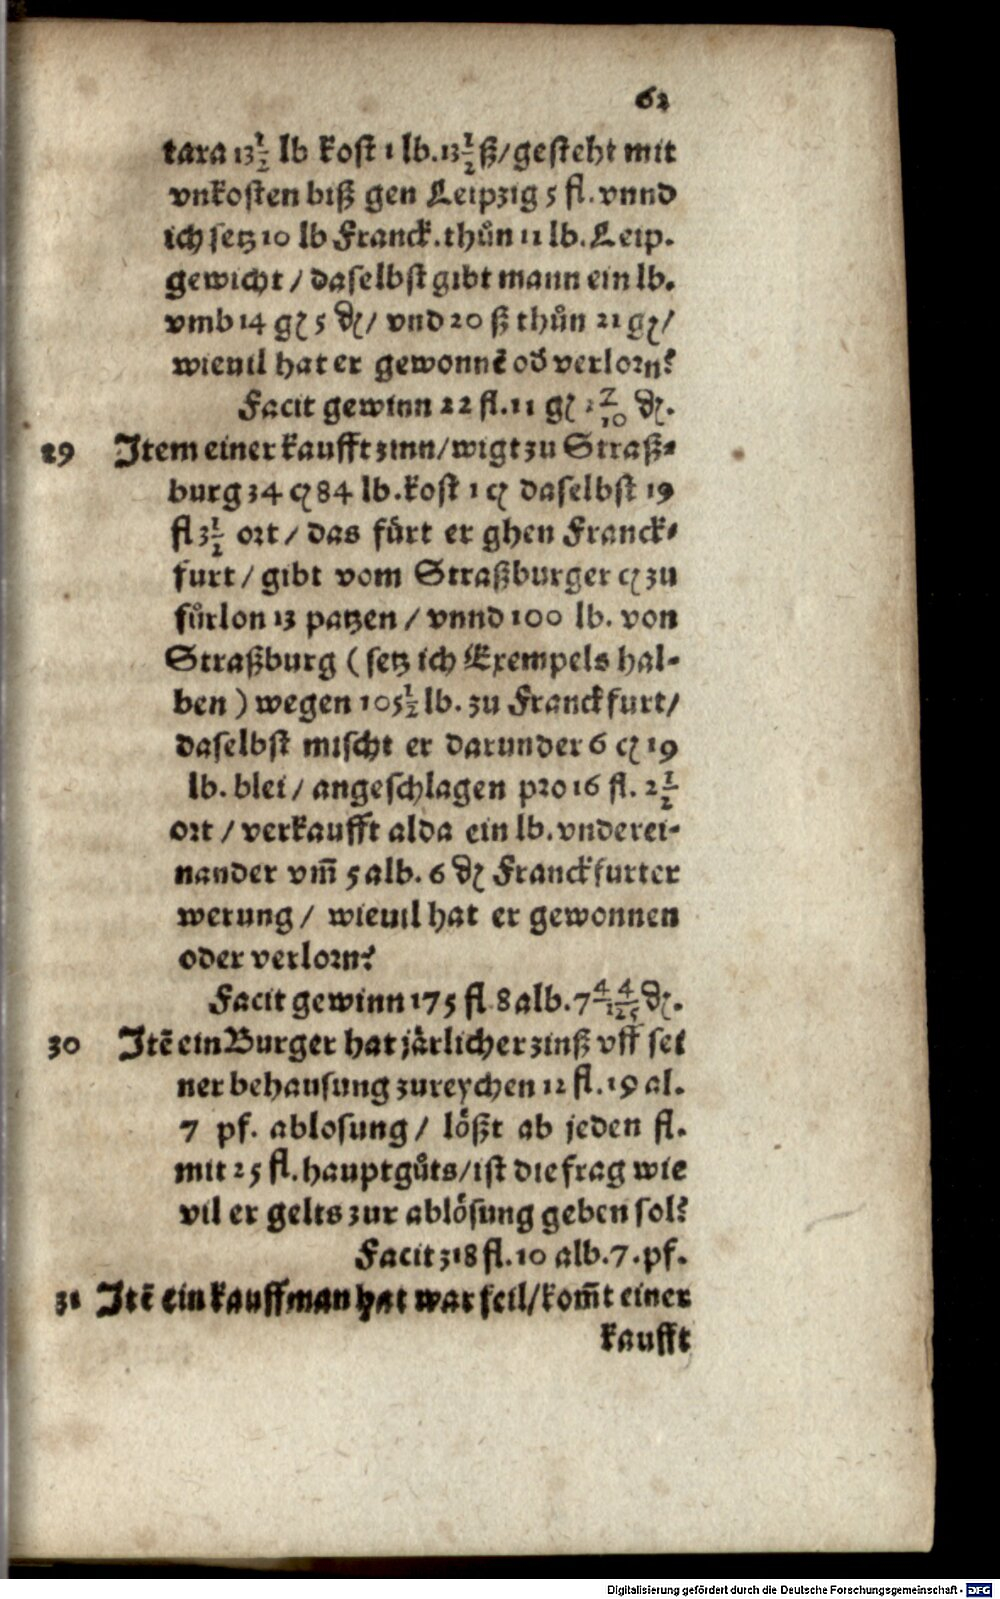 62
tara 13 1/2 lb kost 1 lb. 13 1/2 ß/gesteht mit
vnkosten biß gen Leipzig 5 fl. vnnd
ich setz 10 lb Franck. thůn 11 lb. Leip.
gewicht / daselbst gibt mann ein lb.
vmb 14 gʒ 5 ₰/ vnd 20 ß thůn 21 gʒ/
wieuil hat er gewonnẽ oď verlorn?
Facit gewinn 22 fl. 11 gʒ 2/10 ₰.
29 Item einer kaufft zinn/wigt zu Straß-
burg 34 cʒ 84 lb. kost 1 cʒ daselbst 19
fl 3 1/2 ort / das fürt er ghen Franck-
furt / gibt vom Straßburger cʒ zu
fůrlon 13 patzen / vnnd 100 lb. von
Straßburg ( setz ich Exempels hal-
ben ) wegen 105 1/2 lb. zu Franckfurt/
daselbst mischt er darunder 6 cʒ 19
lb. blei / angeschlagen pro 16 fl. 2 1/2
ort / verkaufft alda ein lb. vnderei-
nander vm̃ 5 alb. 6 ₰ Franckfurter
werung / wieuil hat er gewonnen
oder verlorn?
Facit gewinn 175 fl 8 alb. 7 44/125 ₰.
30 Itẽ ein Burger hat järlicher zinß vff sei
ner behausung zureychen 12 fl. 19 al.
7 pf. ablosung / lößt ab jeden fl.
mit 25 fl. hauptgůts/ist die frag wie
vil er gelts zur ablösung geben sol?
Facit 318 fl. 10 alb. 7. pf.
31 Itẽ ein kauffman hat war feil/kom̃t einer
kaufft
Digitalisierung gefördert durch die Deutsche Forschungsgemeinschaft - DFG